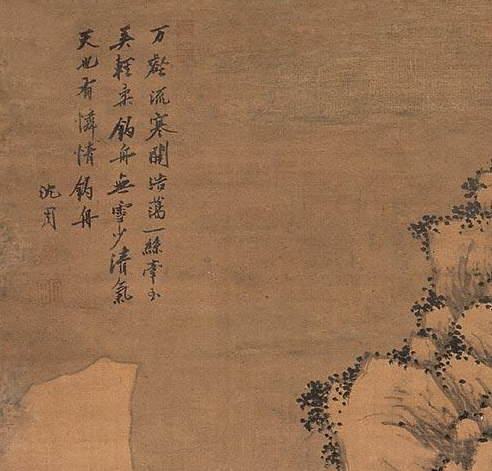 万壑流寒開浩蕩一絲牽玉
美輕柔釣舟無雪少清氣
天也有憐情釣舟
沈周